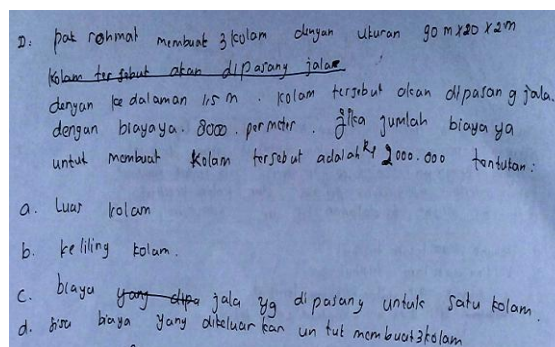 D. pak rohmat membuat 3 kolam dengan ukuran 90 m x 20 x 2m
kolam tersebut akan dipasang jala
dengan ke dalaman 1,5 m. kolam tersebut akan dipasang jala.
dengan biayaya. 8000. permeter. jika jumlah biaya ya
untuk membuat kolam tersebut adalah Rp 2000.000 tentukan:
a. Luas kolam
b. keliling kolam.
c. biaya yang dipa jala yg dipasang untuk satu kolam.
d. sisa biaya yang dikeluarkan untuk membuat 3 kolam